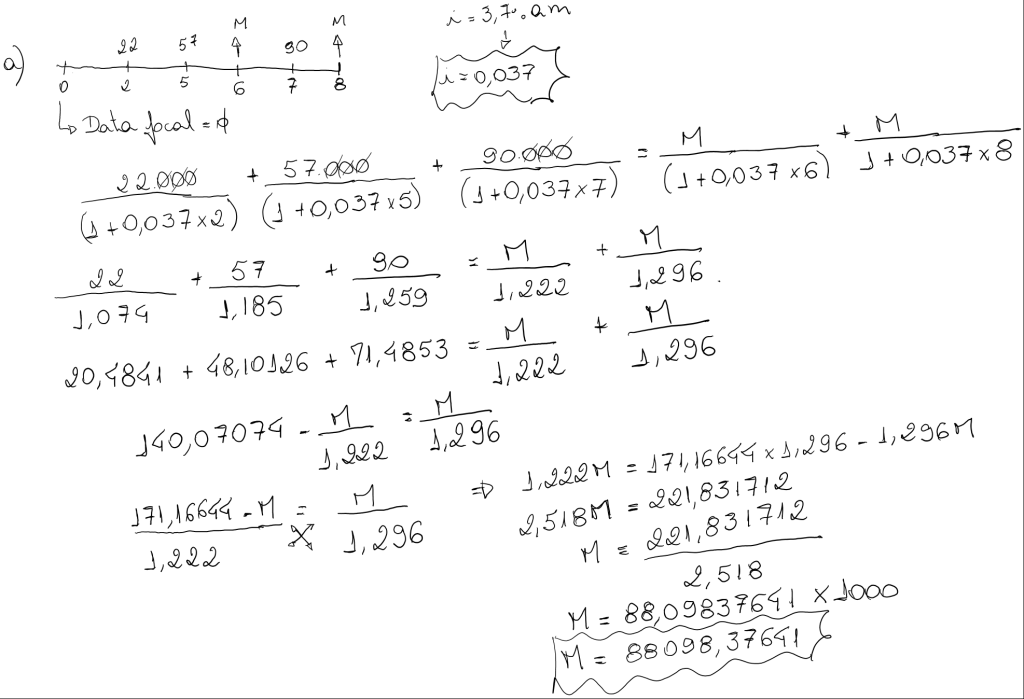 a)
22 57 M 90 M
0 2 5 6 7 8
i = 3,7%.am
i = 0,037
↳ Data focal = ϕ
22.000/(1+0,037×2) + 57.000/(1+0,037×5) + 90.000/(1+0,037×7) = M/(1+0,037×6) + M/1+0,037×8
22/1,074 + 57/1,185 + 90/1,259 = M/1,222 + M/1,296.
20,4841 + 48,10126 + 71,4853 = M/1,222 + M/1,296
140,07074 - M/1,222 = M/1,296
171,16644 - M/1,222 = M/1,296
⇒ 1,222M = 171,16644 × 1,296 - 1,296M
2,518M = 221,831712
M = 221,831712/2,518
M = 88,09837641 × 1000
M = 88098,37641